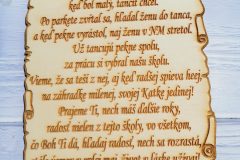 keď bol malý, tancit chcel.
Po parkete zvŕtal sa, hľadal ženu do tanca,
a keď pekne vyrástol, naj ženu v NM stretol.
Už tancujú pekne spolu,
za prácu si vybral našu školu.
Vieme, že sa teší z nej, aj keď radšej spieva heej,
na záhradke milenej, svojej Katke jedinej!
Prajeme Ti, nech máš ďalšie roky,
radosť mielen z tejto školy, vo všetkom,
čo Boh Ti dá, hľadaj radosť, nech sa rozrastá,